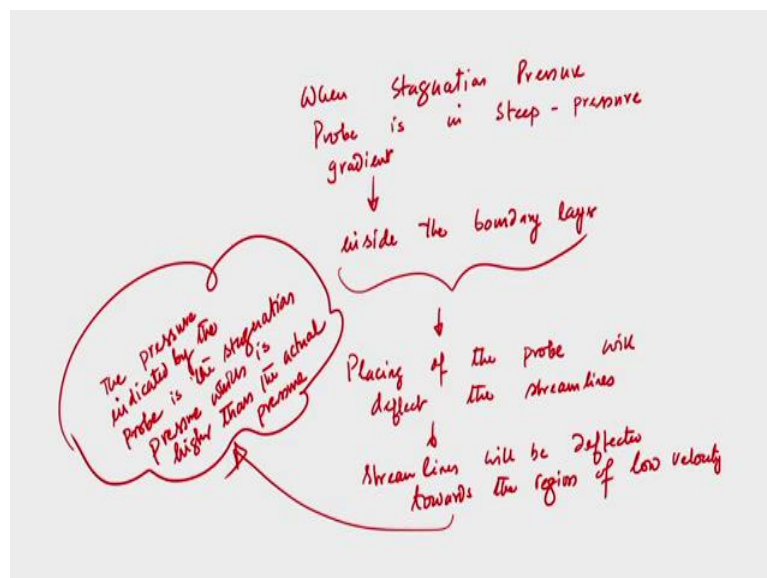 When Stagnation Pressure
Probe is in steep-pressure
gradient
inside the boundary layer
Placing of the probe will
deflect the streamlines
streamlines will be deflected
towards the region of low velocity
The pressure
indicated by the
probe is the stagnation
pressure which is
higher than the actual
pressure